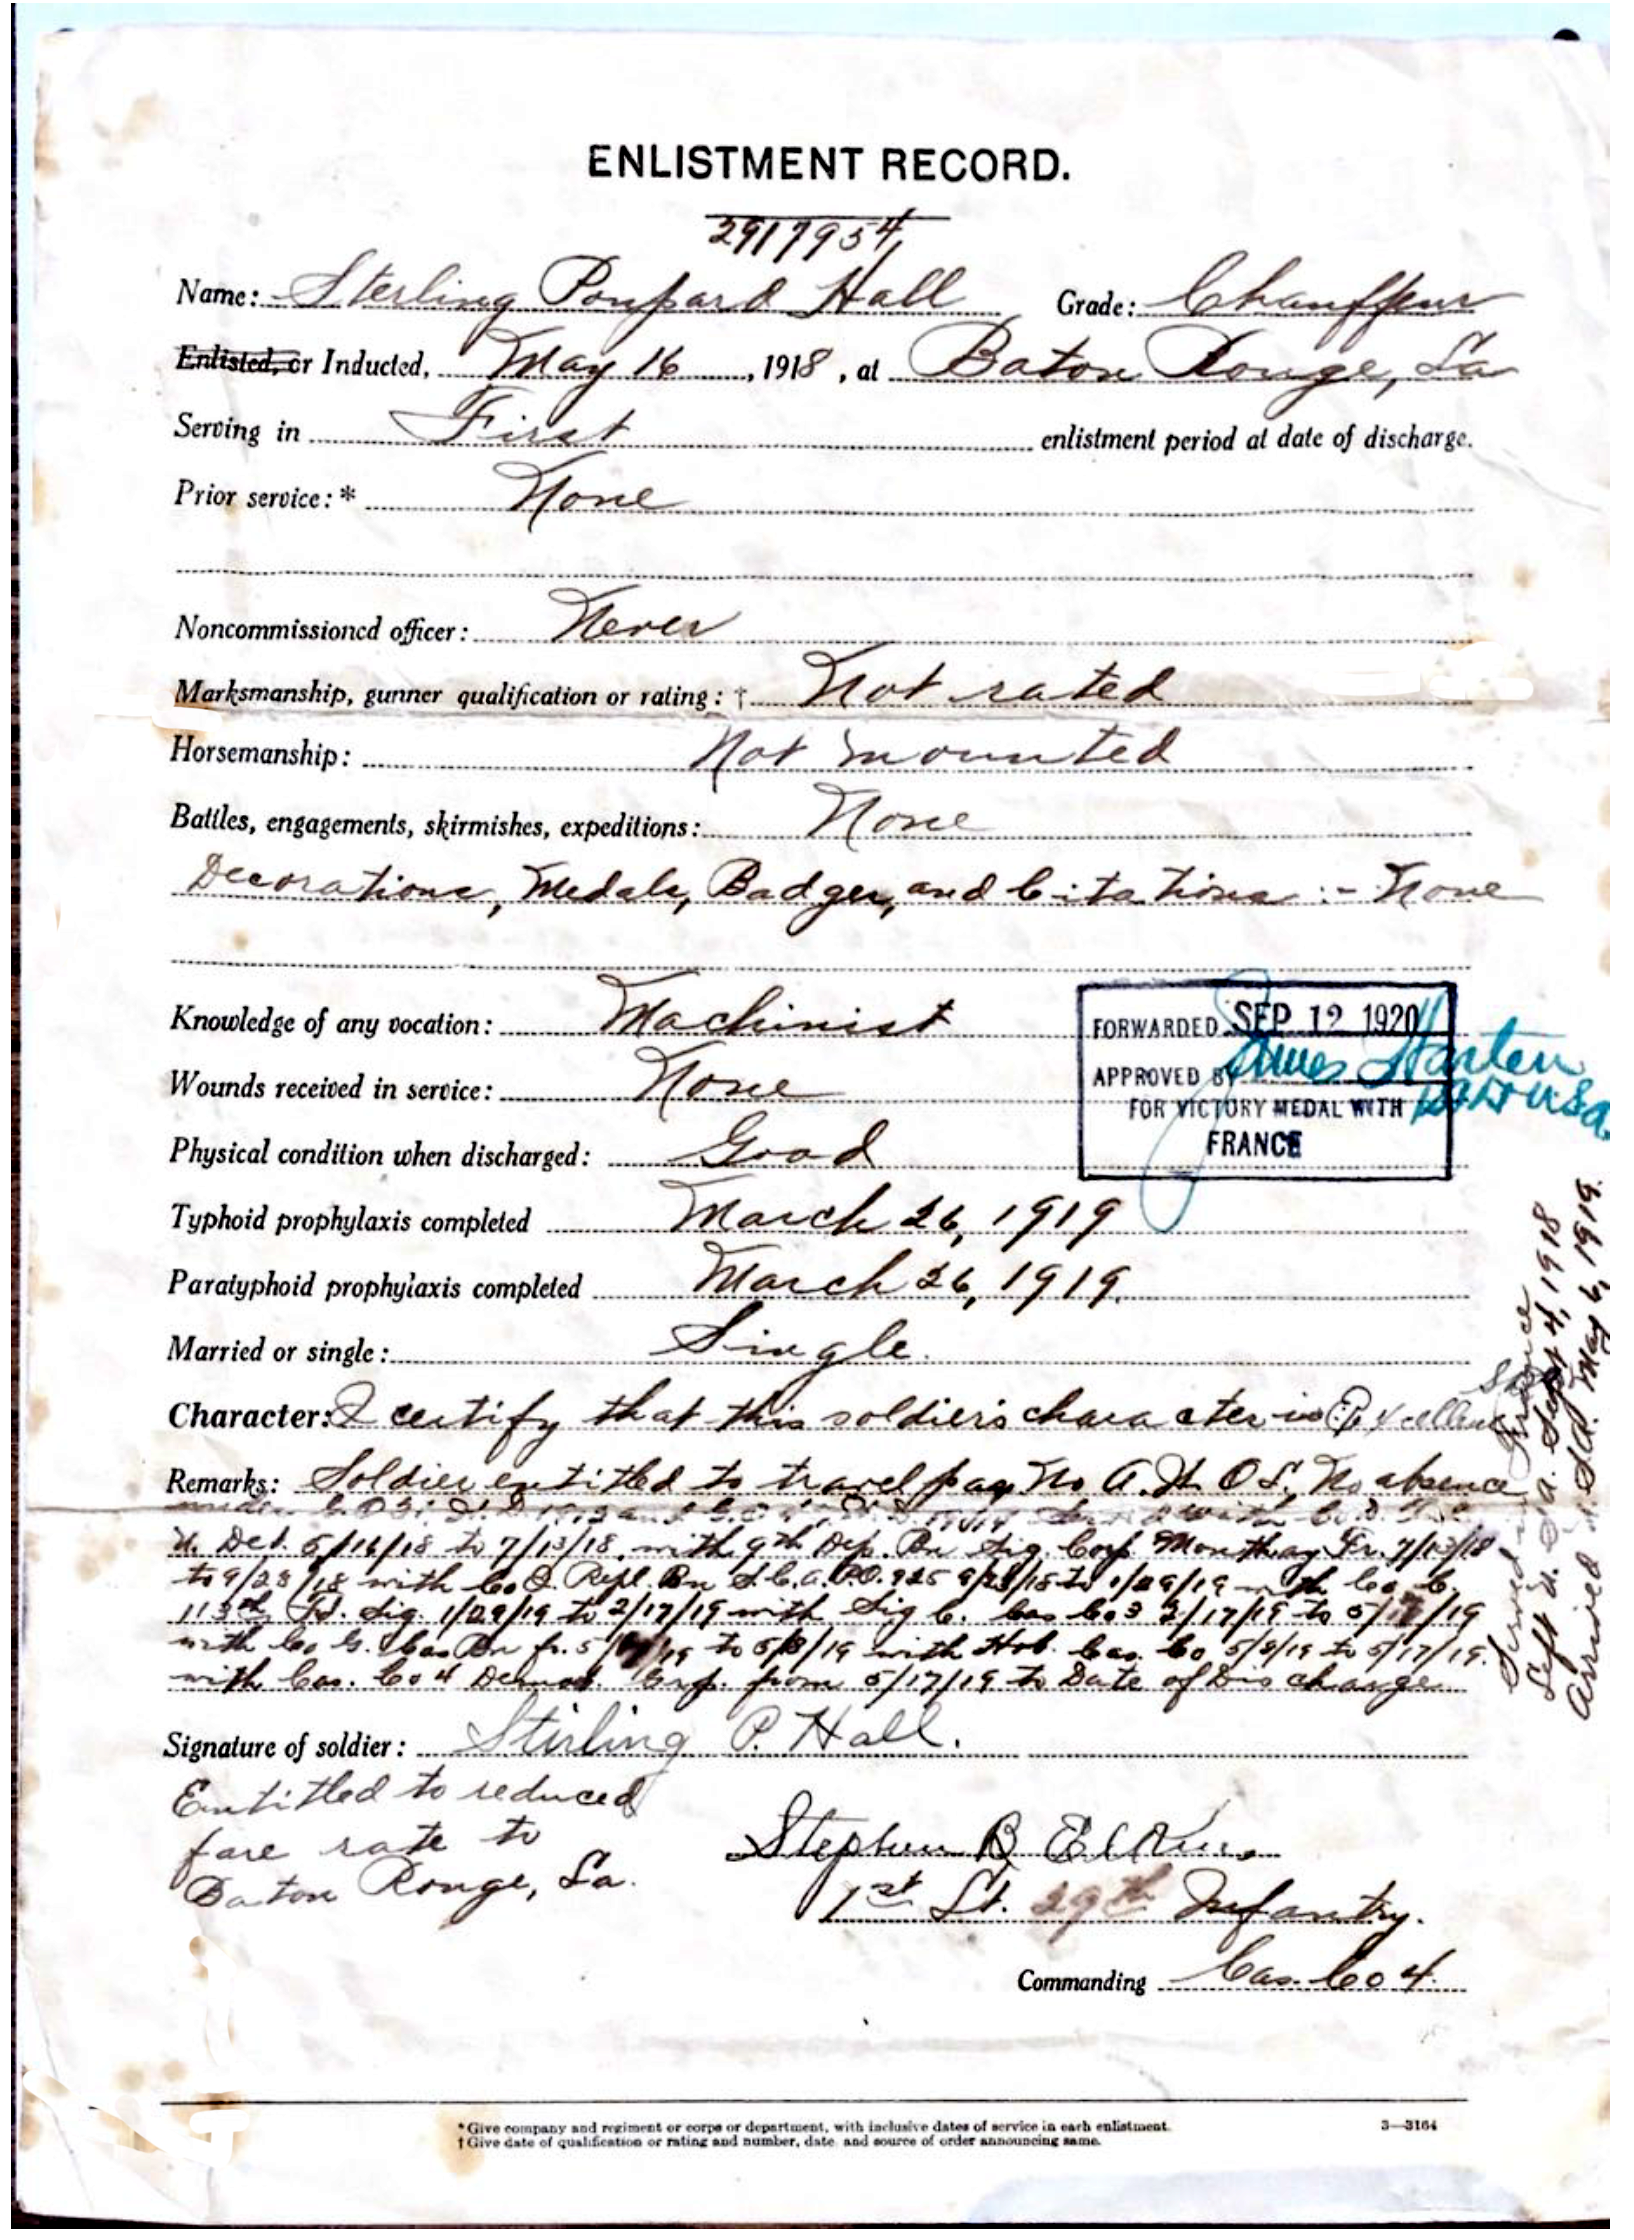 ENLISTMENT RECORD.
2917954
Name: Sterling Poupard Hall Grade: Chauffeur
Enlisted, or Inducted, May 16, 1918, at Baton Rouge, La
Serving in First enlistment period at date of discharge.
Prior service:* None
Noncommissioned officer: Never
Marksmanship, gunner qualification or rating:† Not rated
Horsemanship: Not mounted
Battles, engagements, skirmishes, expeditions: None
Decorations, Medals, Badges, and Citations :- None
Knowledge of any vocation: Machinist
Wounds received in service: None
Physical condition when discharged: Good
Typhoid prophylaxis completed March 26, 1919
Paratyphoid prophylaxis completed March 26, 1919.
Married or single: Single.
Character: I certify that this soldier's character is Excellent
Remarks: Soldier entitled to travel pay No A.W.O.L. No absence
under G.O. 31, W.D. 1912 and G.O. W.D. 1914 Served with Co.
U. Det. 5/16/18 to 7/13/18, with 9th Dep. Bn Sig. Corp. Fr. 7/13/18
to 9/23/18 with Co D. Repl. Bn S.C. A.P.O. 925 9/23/18 to 1/29/19 with Co C.
113th Fd. Sig. 1/29/19 to 2/17/19 with Sig C. Cas Co 3 2/17/19 to 5/ /19
with Co G. Cas Bn fr. 5/ /19 to 5/8/19 with Hob. Cas. Co 5/8/19 to 5/17/19.
with Cas. Co 4 Demob. Grp. from 5/17/19 to Date of Discharge
Signature of soldier: Stirling P. Hall.
Entitled to reduced
fare rate to
Baton Rouge, La.
Stephen B Elkins
1st Lt. 29th Infantry.
Commanding Cas. Co 4.
FORWARDED SEP 12 1920
APPROVED BY James
FOR VICTORY MEDAL WITH
FRANCE
Served in France
Left U.S.A. Sept 4, 1918
Arrived U.S.A. May 6, 1919.
*Give company and regiment or corps or department, with inclusive dates of service in each enlistment.
†Give date of qualification or rating and number, date, and source of order announcing same.
3—3164